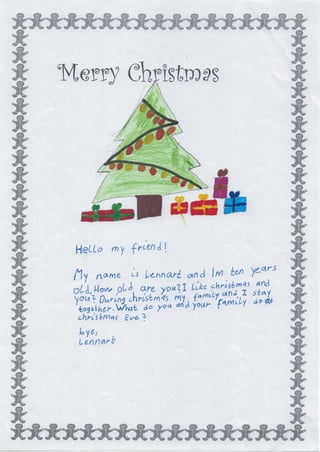 Merry Christmas
Hello my friend!
My name is Lennart and Im ten years
old. How old are you? I Like christmas and
you? During christmas my family and I stay
together. What do you and your family do at
christmas Eve?
bye,
Lennart